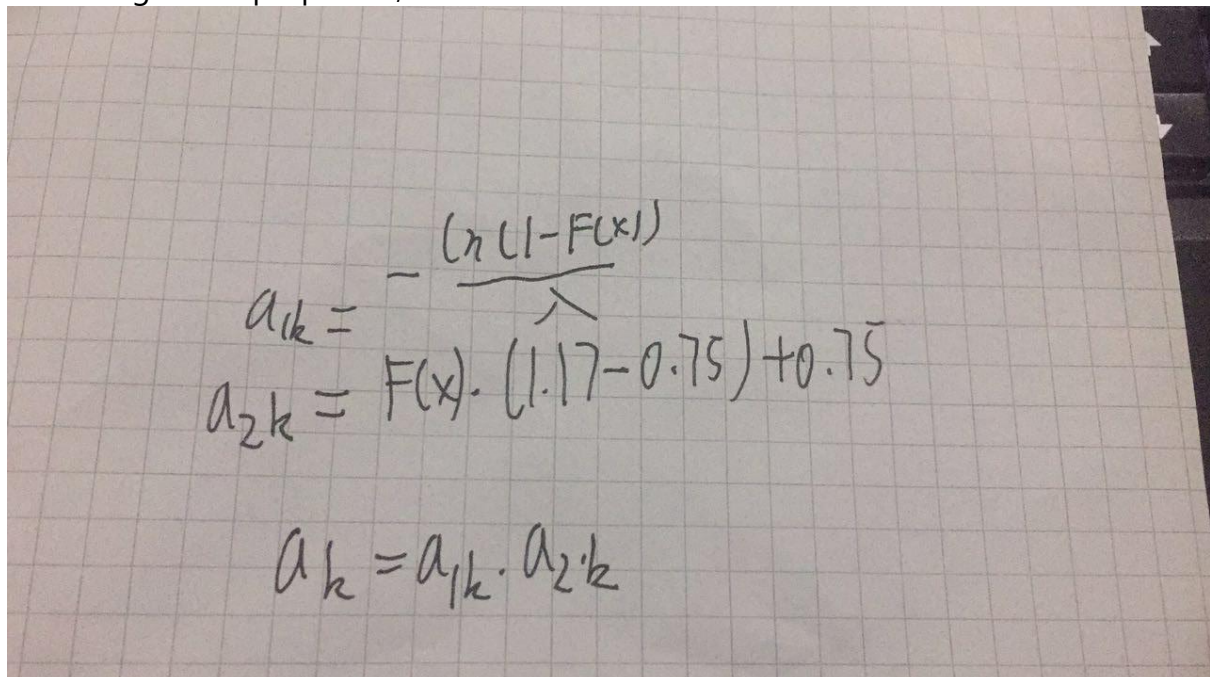 a_{1k} = - \frac{ln(1-F(x))}{λ}
a_{2k} = F(x)·(1.17-0.75)+0.75
a_k = a_{1k}·a_{2·k}